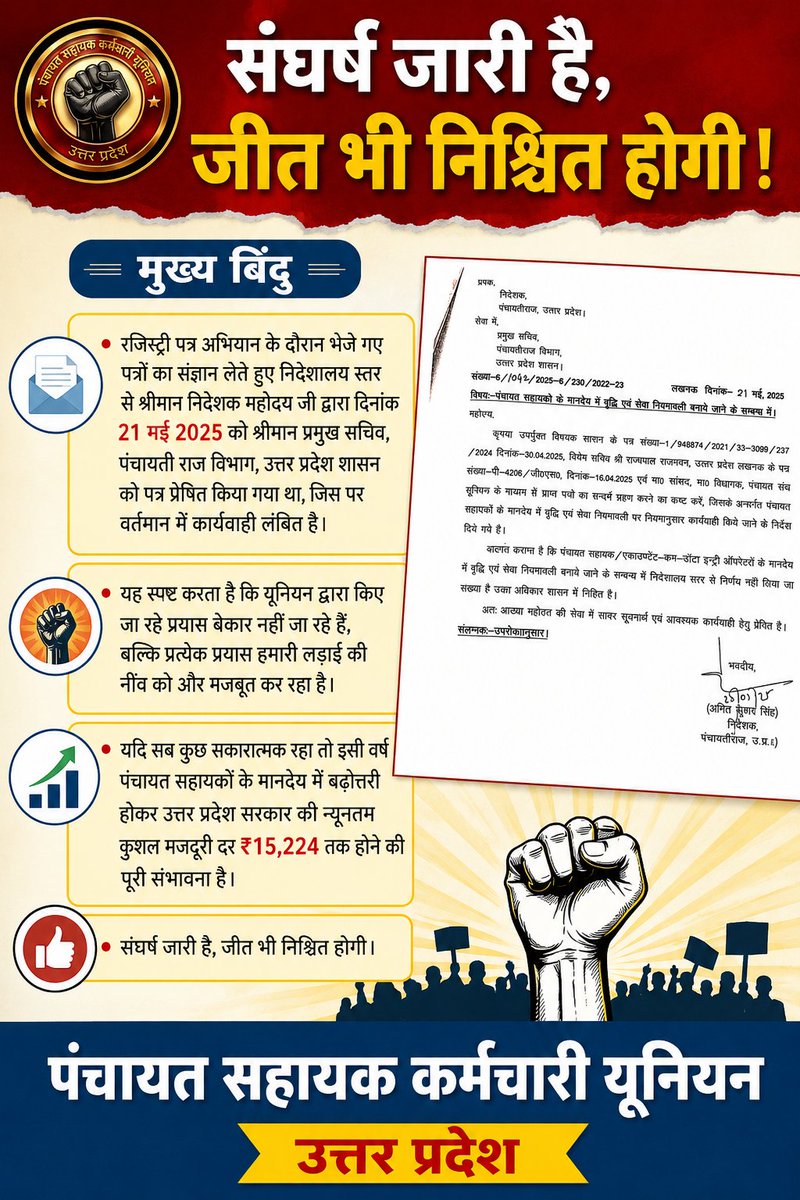 पंचायत सहायक कर्मचारी यूनियन
उत्तर प्रदेश
संघर्ष जारी है,
जीत भी निश्चित होगी!
मुख्य बिंदु
• रजिस्ट्री पत्र अभियान के दौरान भेजे गए
पत्रों का संज्ञान लेते हुए निदेशालय स्तर
से श्रीमान निदेशक महोदय जी द्वारा दिनांक
21 मई 2025 को श्रीमान प्रमुख सचिव,
पंचायती राज विभाग, उत्तर प्रदेश शासन
को पत्र प्रेषित किया गया था, जिस पर
वर्तमान में कार्यवाही लंबित है।
• यह स्पष्ट करता है कि यूनियन द्वारा किए
जा रहे प्रयास बेकार नहीं जा रहे हैं,
बल्कि प्रत्येक प्रयास हमारी लड़ाई की
नींव को और मजबूत कर रहा है।
• यदि सब कुछ सकारात्मक रहा तो इसी वर्ष
पंचायत सहायकों के मानदेय में बढ़ोत्तरी
होकर उत्तर प्रदेश सरकार की न्यूनतम
कुशल मजदूरी दर ₹15,224 तक होने की
पूरी संभावना है।
• संघर्ष जारी है, जीत भी निश्चित होगी।
प्रपक,
निदेशक,
पंचायतीराज, उत्तर प्रदेश।
सेवा में,
प्रमुख सचिव,
पंचायतीराज विभाग,
उत्तर प्रदेश शासन।
संख्या-6/1042/2025-6/230/2022-23 लखनक दिनांक- 21 मई, 2025
विषयः-पंचायत सहायको के मानदेय में वृद्धि एवं सेवा नियमावली बनाये जाने के सम्बन्ध में।
महोएय,
कृपया उपर्युक्त विषयक सासन के पत्र संख्या-1/948874/2021/33-3099/237
/2024 दिनांक-30.04.2025, विशेष सचिव श्री राज्यपाल राजभवन, उत्तर प्रदेश लखनक के पत्र
संख्या-पी-4206/जी०एस०, दिनांक-16.04.2025 एवं मा0 सांसद, मा0 विधायक, पंचायत संघ
यूनियन के माध्यम से प्राप्त पत्रो का सन्दर्भ ग्रहण करने का कष्ट करें, जिसके अन्तर्गत पंचायत
सहायकों के मानदेय में वृद्धि एवं सेवा नियमावली पर नियमानुसार कार्यवाही किये जाने के निर्देश
दिये गये है।
कराना है कि पंचायत सहायक/एकाउण्टेंट-कम-डॉटा इन्ट्री ऑपरेटरों के मानदेय
में वृद्धि एवं सेवा नियमावली बनाये जाने के सम्बन्ध में निदेशालय स्तर से निर्णय नहीं लिया जा
सख्या है उका अधिकार शासन में निहित है।
अतः आख्या महोदय की सेवा में सादर सूचनार्थ एवं आवश्यक कार्यवाही हेतु प्रेषित है।
संलग्नकः-उपरोक्तानुसार।
भवदीय,
(अमित कुमार सिंह)
निदेशक,
पंचायतीराज, उ.प्र.
पंचायत सहायक कर्मचारी यूनियन
उत्तर प्रदेश